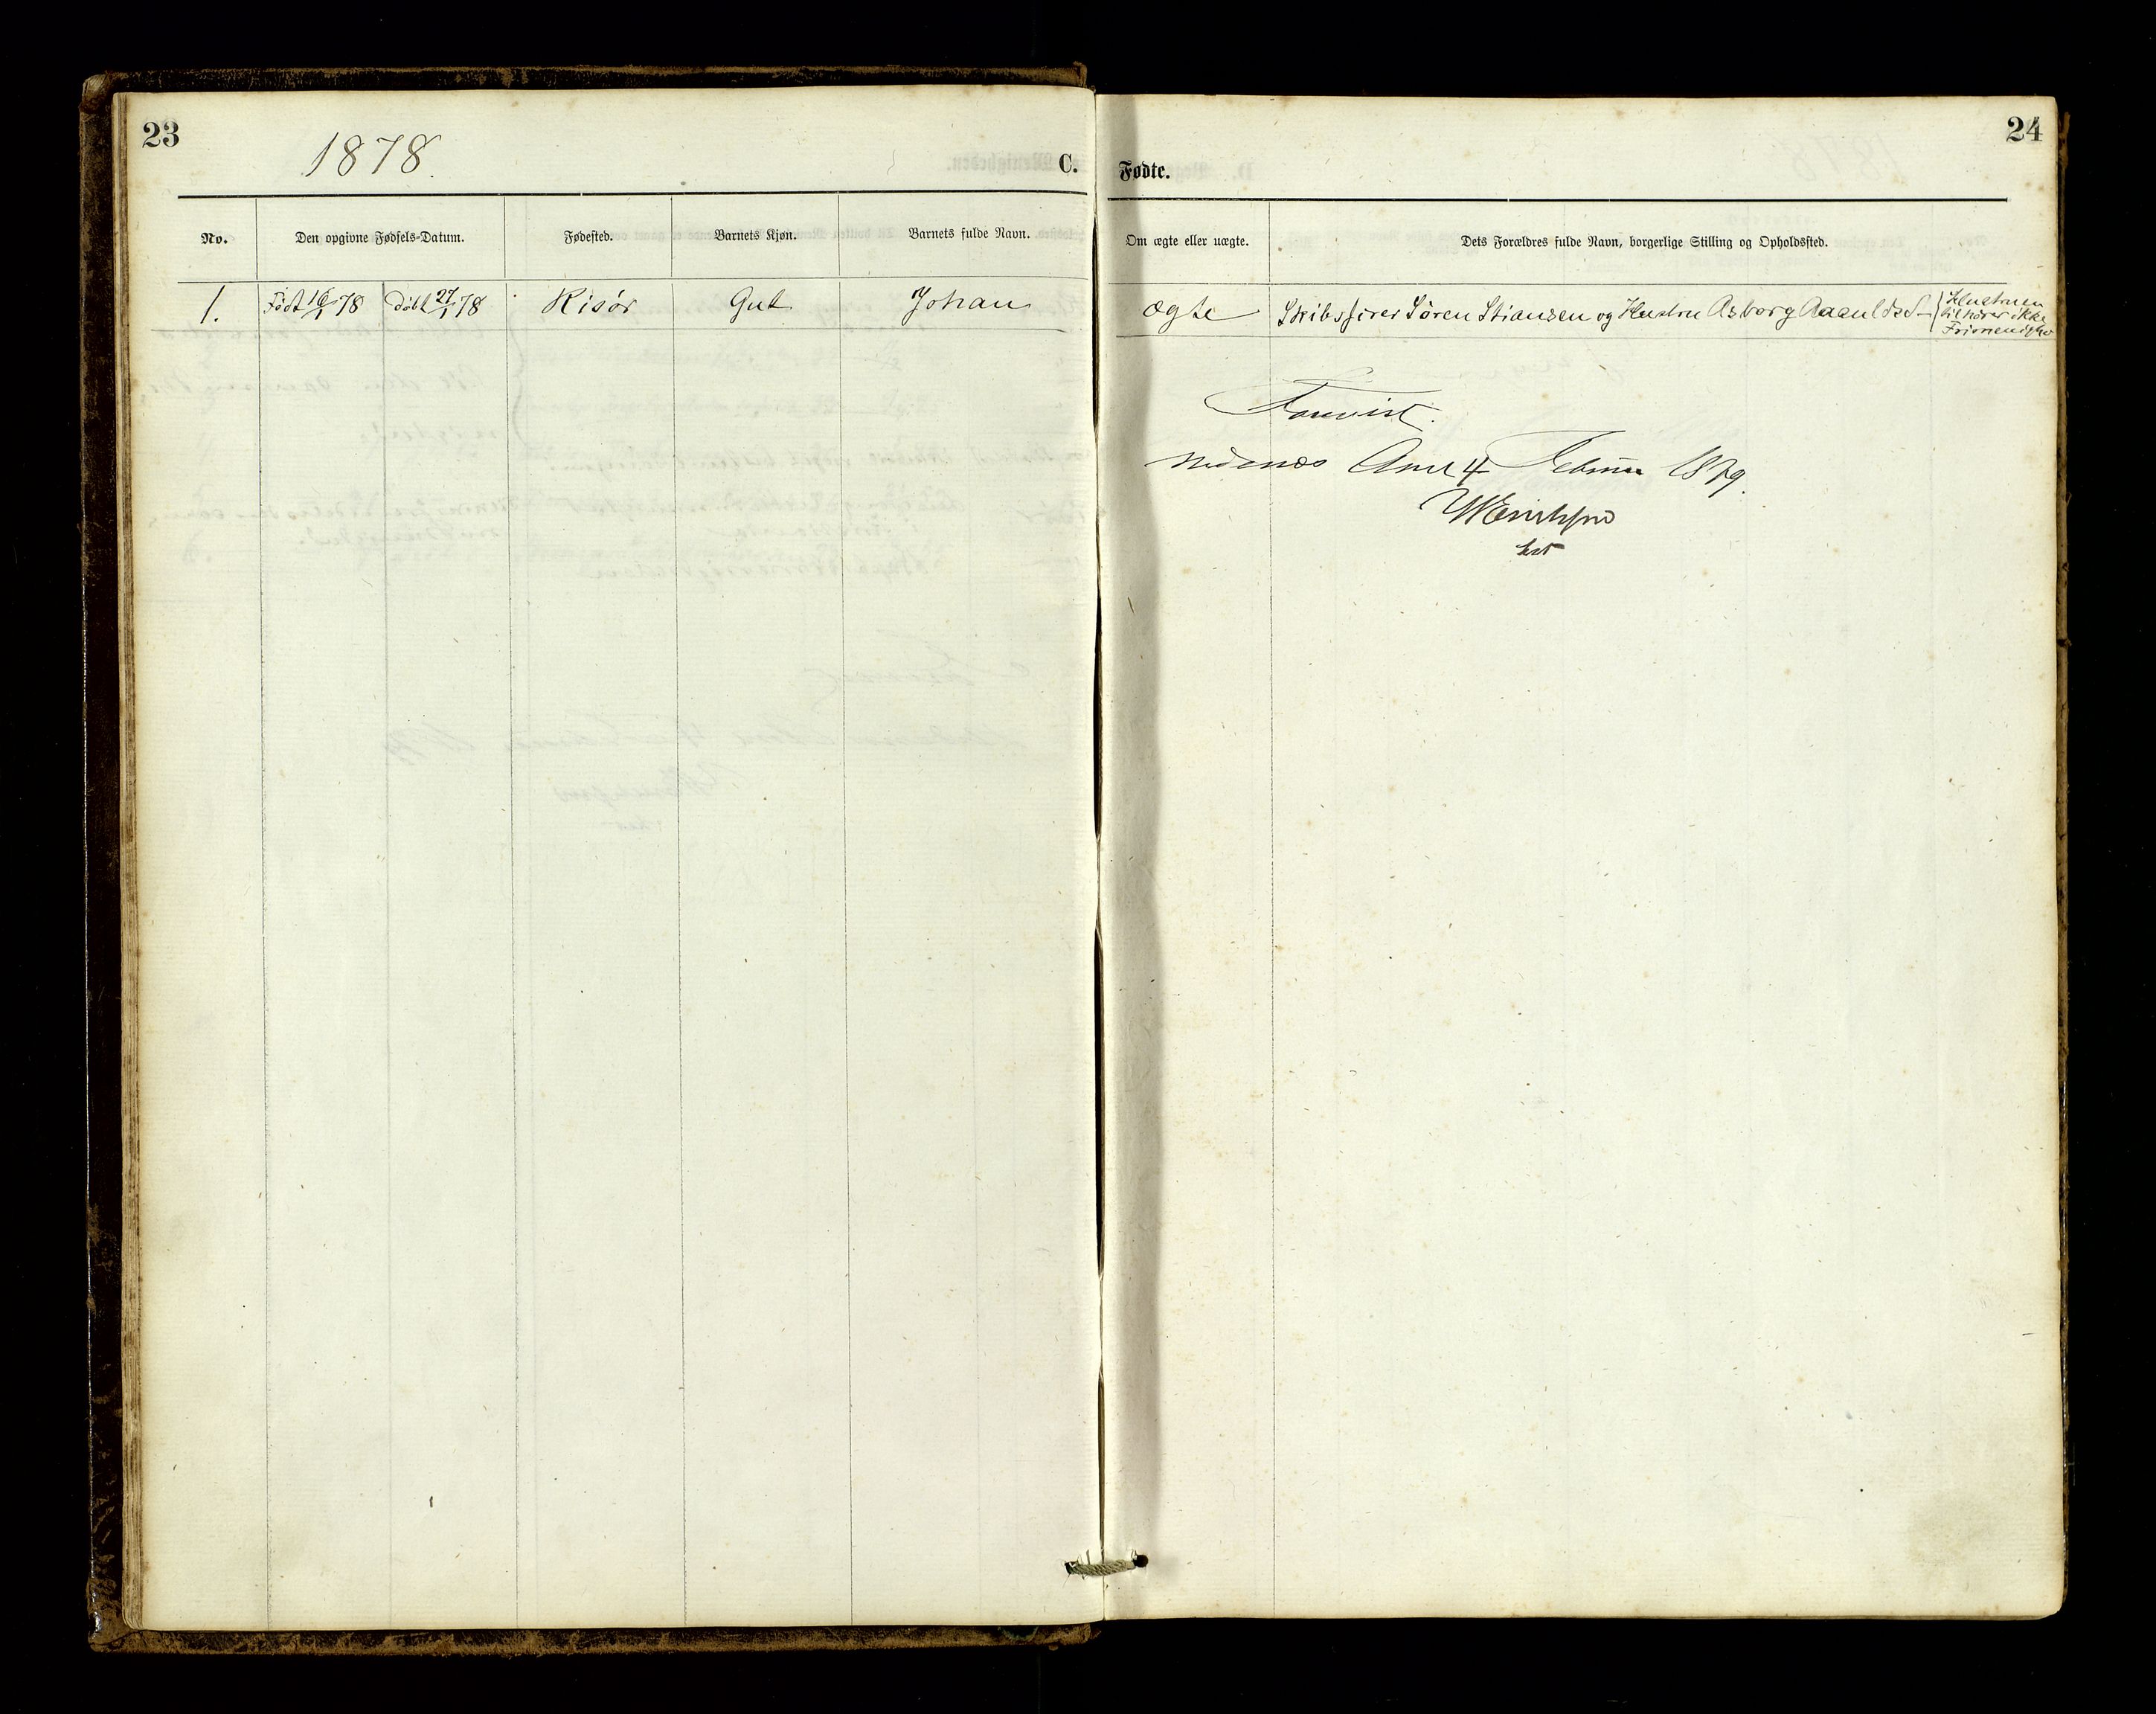 23
1878.
C.
No.
Den opgivne Fødsels-Datum.
Fødested.
Barnets Kjøn.
Barnets fulde Navn.
1.
Født 16/1 78
döbt 27/1 78
Risör
Gut
Johan
24
Fødte.
Om ægte eller uægte.
Dets Forældres fulde Navn, borgerlige Stilling og Opholdssted.
ægte
Skibsfører Sören Stiansen og Hustru Asborg Aanulds d
Hustruen
tilhører ikke
Frimenigh
Forevist.
Nedenæs Amt 4 Februar 1879.